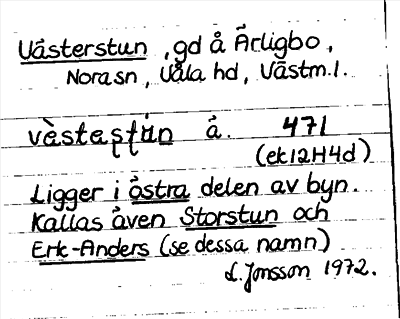 Västerstun, gd å Ärligbo,
Norasn, Våla hd, Västm.l.
vèstaștu̇n å. 471
(ek12H4d)
Ligger i östra delen av byn.
Kallas även Storstun och
Erk-Anders (se dessa namn)
L. Jonsson 1972.